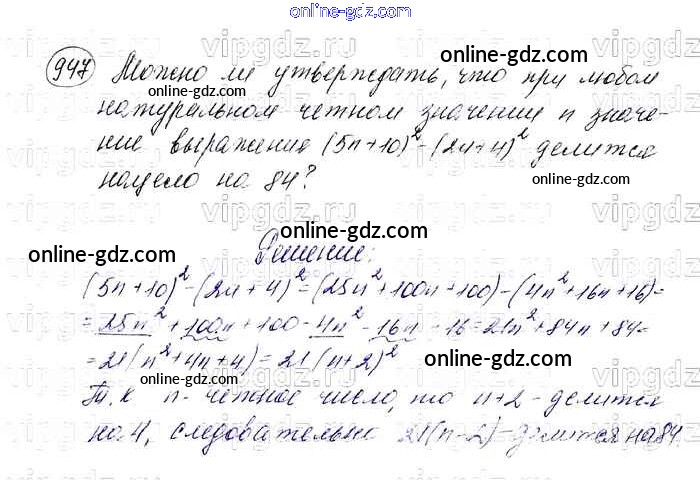 online-gdz.com
947 Можно ли утверждать, что при любом
натуральном четном значении n значе-
ние выражения (5n+10)² - (2n+4)² делится
нацело на 84?
online-gdz.com
online-gdz.com
online-gdz.com
online-gdz.com
Решение:
online-gdz.com
(5n+10)² - (2n+4)² = (25n²+100n+100) - (4n²+16n+16)=
= 25n² + 100n + 100 - 4n² - 16n - 16 = 21n² + 84n + 84 =
= 21(n²+4n+4) = 21(n+2)²
online-gdz.com
online-gdz.com
Т.к n - четное число, то n+2 - делится
на 4, следовательно 21(n-2) - делится на 84.
online-gdz.com
online-gdz.com
vipgdz.ru
vipgdz.ru
vipgdz.ru